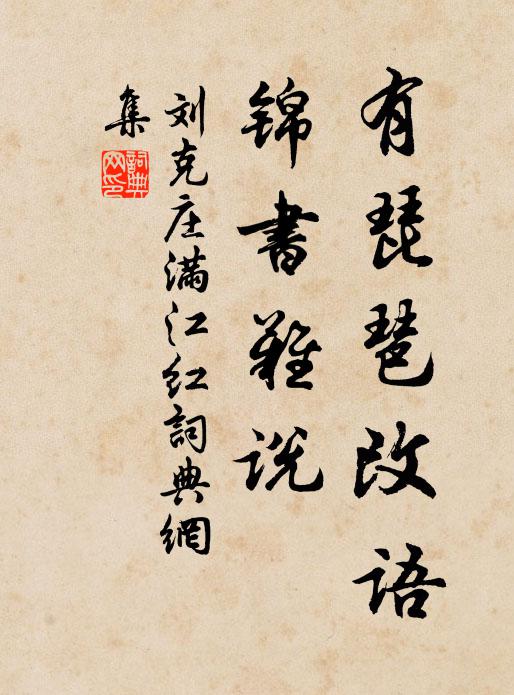 有琵琶改语
锦书难说
刘克庄满江红詞典網
集
詞典
网印